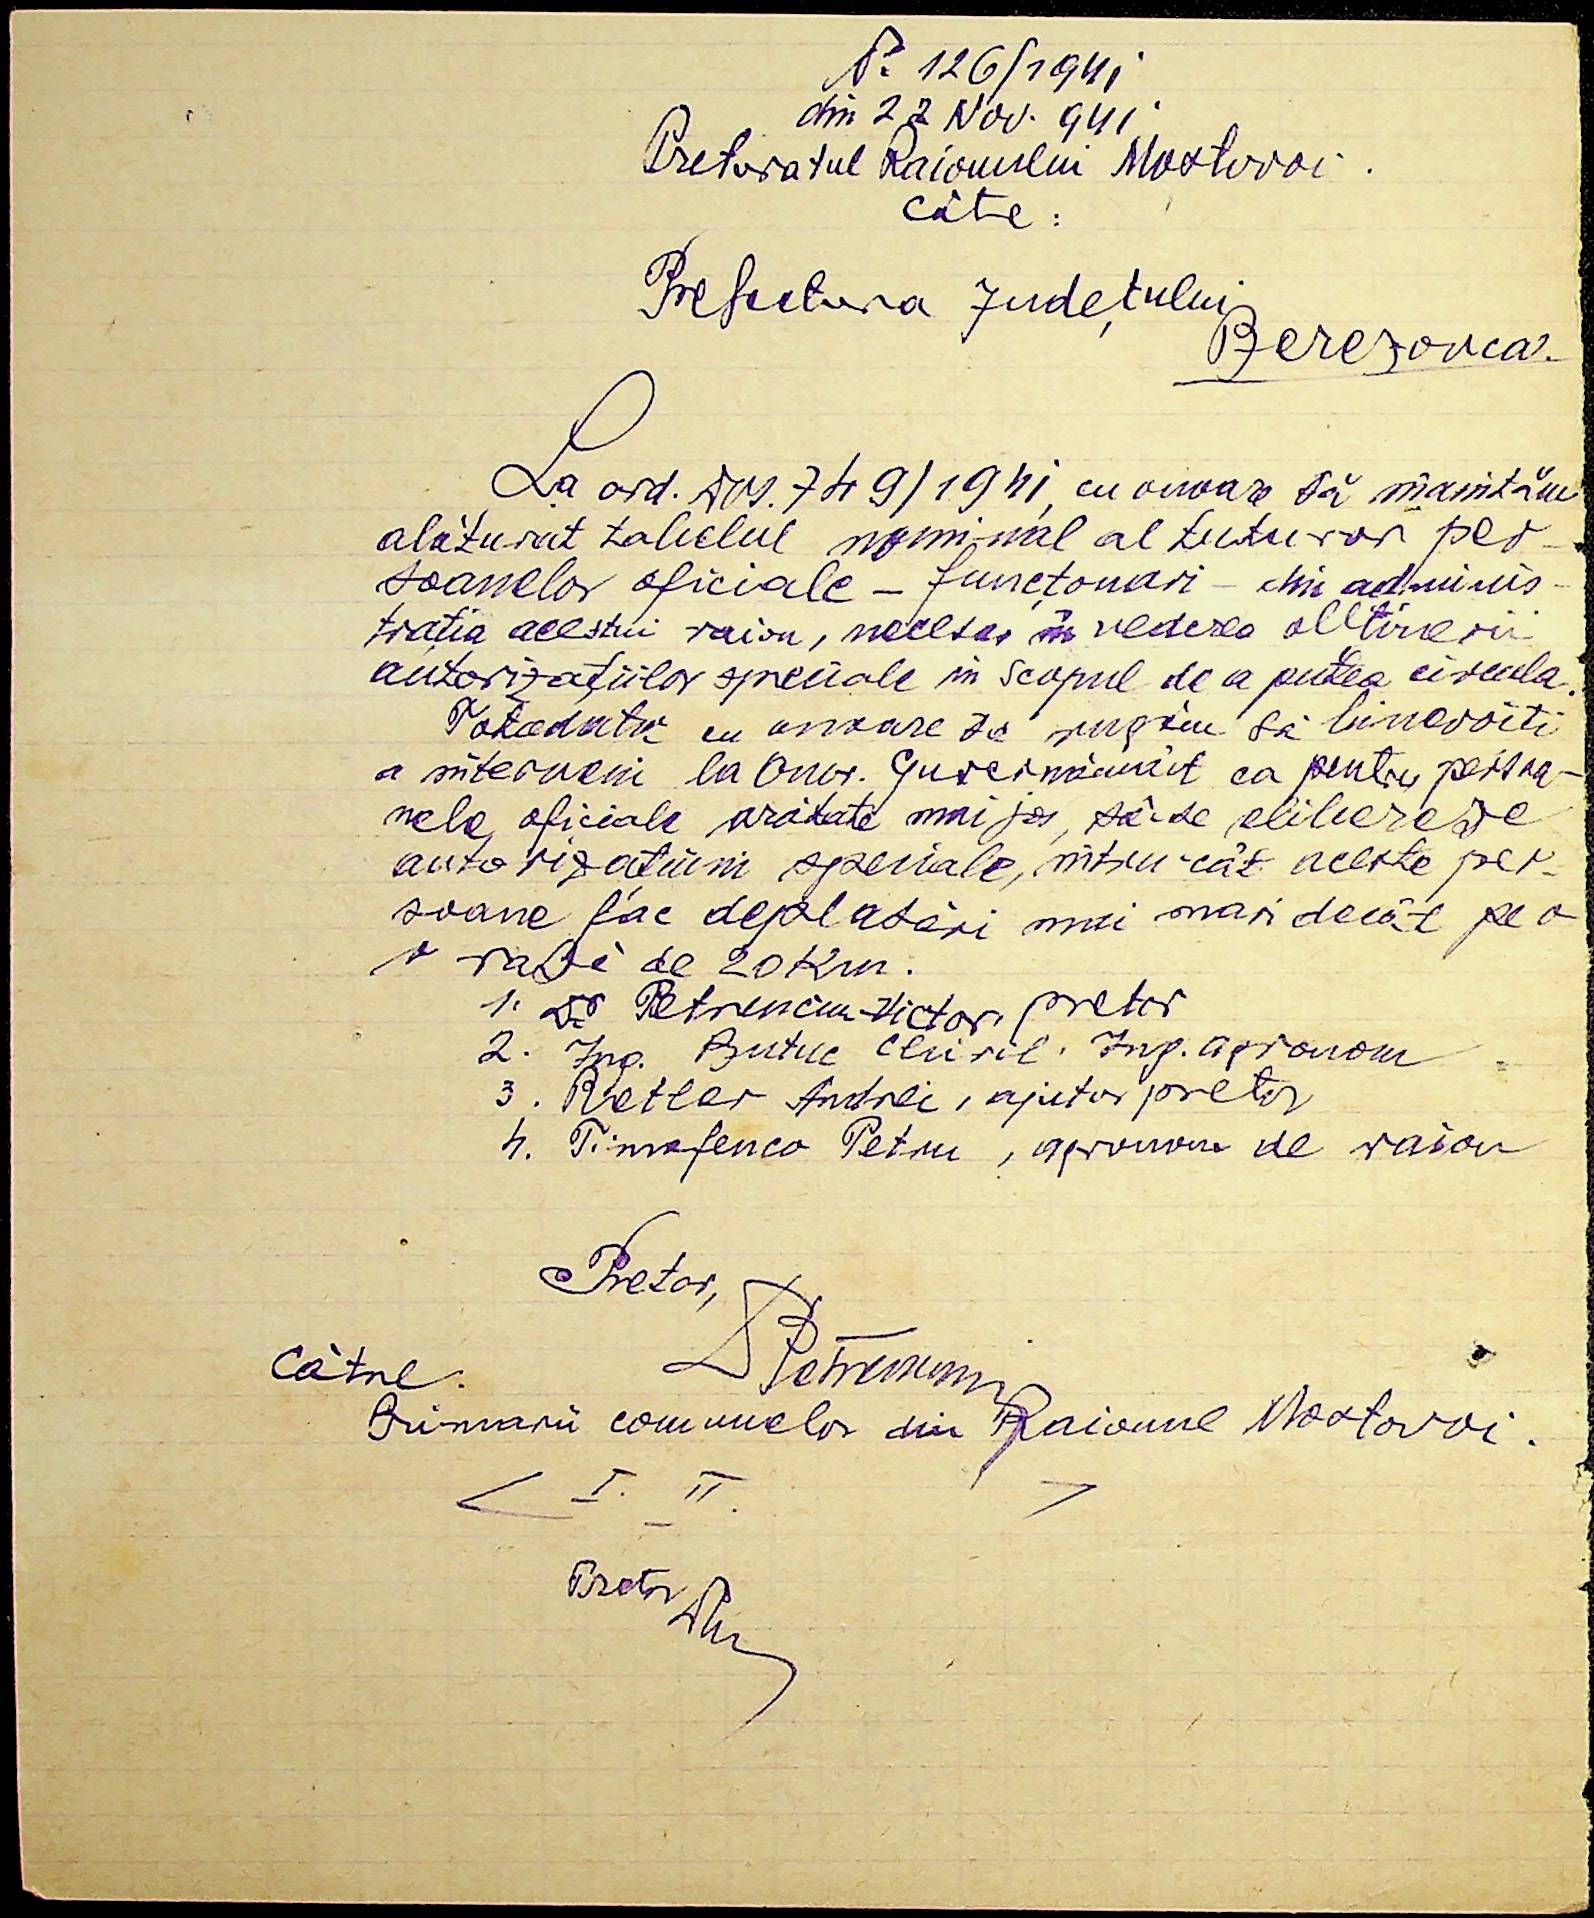 N: 126/1941
din 22 Nov. 941
Pretoratul Raionului Mostovoi.
Către:
Prefectura Județului
Berezovca.
La ord. Dvs. 749/1941, cu onoare vă înaintăm
alăturat tabelul nominal al tuturor per-
soanelor oficiale - funcțonari - din adminis-
trația acestui raion, necesar în vederea obținerii
autorizațiilor speciale în scopul de a putea circula.
Totodată cu onoare vă rugăm să binevoiți
a interveni la Onor. Guvernământ ca pentru persoa-
nele oficiale arătate mai jos, să-se elibereze
autorizațiuni speciale, întru-cât aceste per-
soane fac deplasări mai mari decât pe o
o rază de 20 Km.
1. Dr Petrenciu Victor, pretor
2. Ing. Butuc Chiril. Ing. agronom
3. Retler Andrei, ajutor pretor
4. Timofenco Petru, agronom de raion
Pretor,
Către.
Primarii comunelor din Raionul Mostovoi.
< I. II. >
Pretor